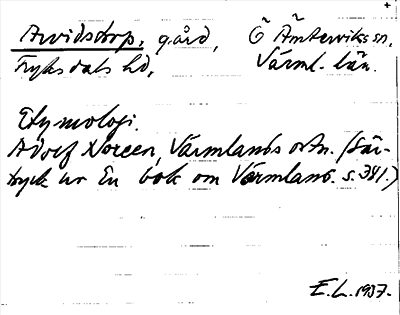 Arvidstorp, gård, Ö Ämterviks sn,
Fryksdals hd, Värml. län.
Etymologi.
Adolf Noreen, Värmlands ortn. (Sär-
tryck ur En bok om Värmland. s. 381.)
E.L. 1937.